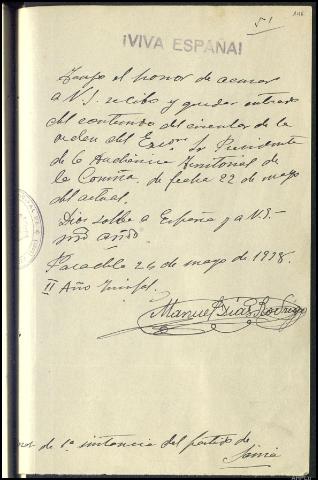 51
¡VIVA ESPAÑA!
Tengo el honor de acusar
a V.S. recibo y quedar enterado
del contenido del circular de la
orden del Excmo Sr Presidente
de la Audiencia Territorial de
la Coruña, de fecha 22 de mayo
del actual.
Dios salve a España y a V.S.-
m. años.
Paradela 26 de mayo de 1938.
II Año Triunfal.
Manuel Díaz Rodríguez
de 1ª instancia del partido de
Sarria